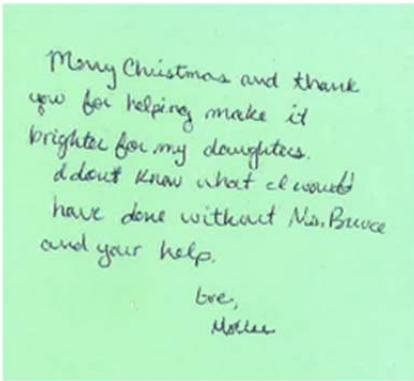 Merry Christmas and thank
you for helping make it
brighter for my daughters.
I dont know what I would
have done without Ms. Bruce
and your help.
Love,
Mother